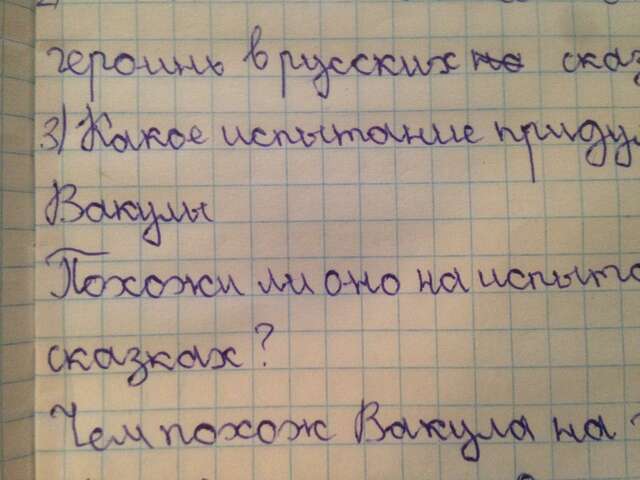 героинь в русских ска
3) Какое испытание приду
Вакулы
Похожи ли оно на испыт
сказках?
Чем похож Вакула на